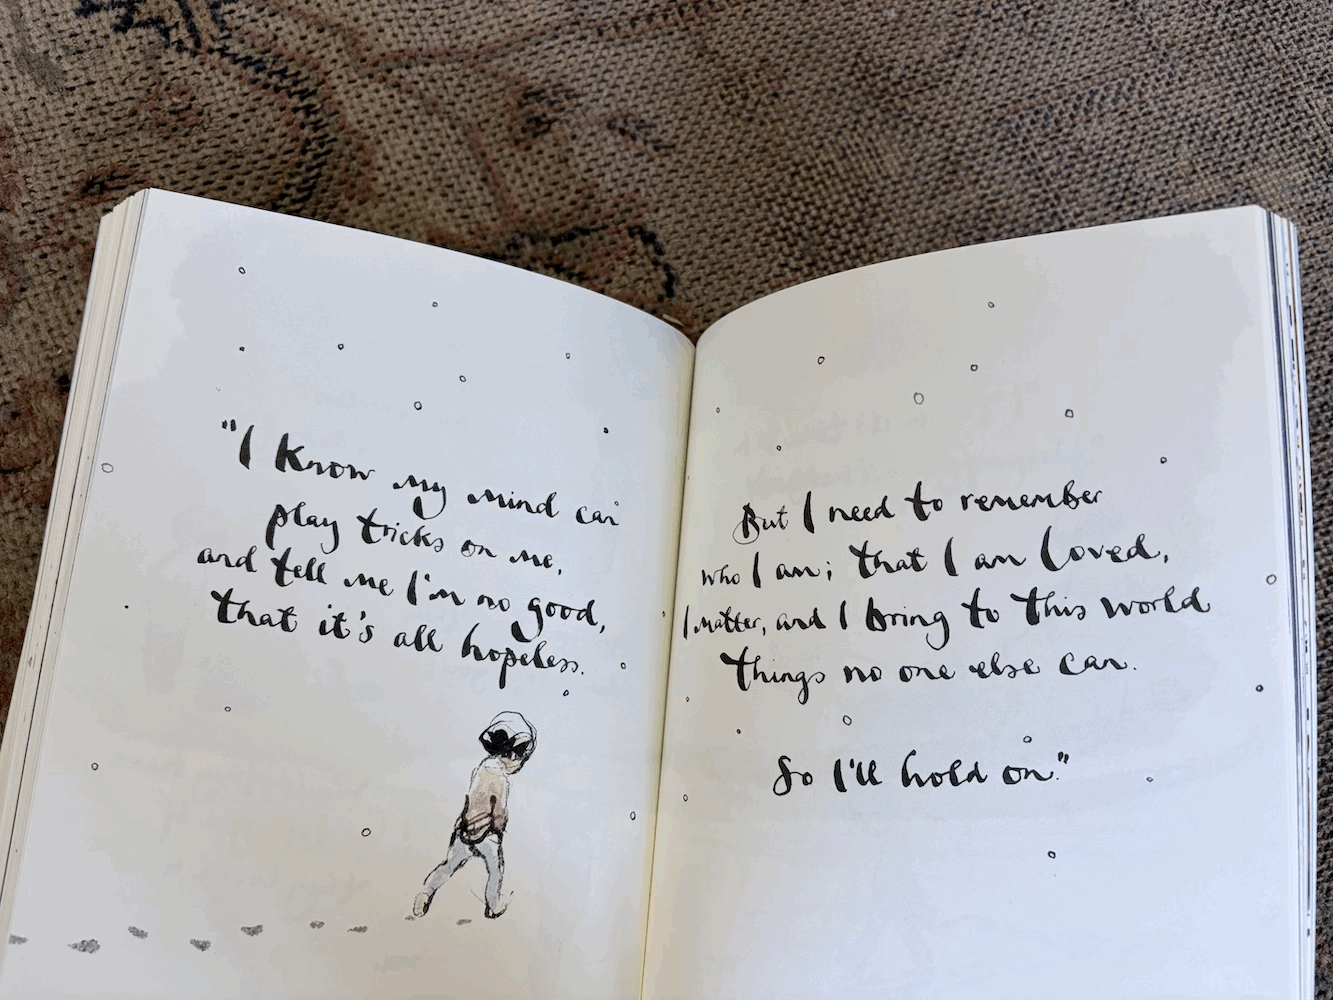 "I know my mind can
play tricks on me,
and tell me I'm no good,
that it's all hopeless.
But I need to remember
who I am; that I am loved,
I matter, and I bring to this world
things no one else can.
So I'll hold on."